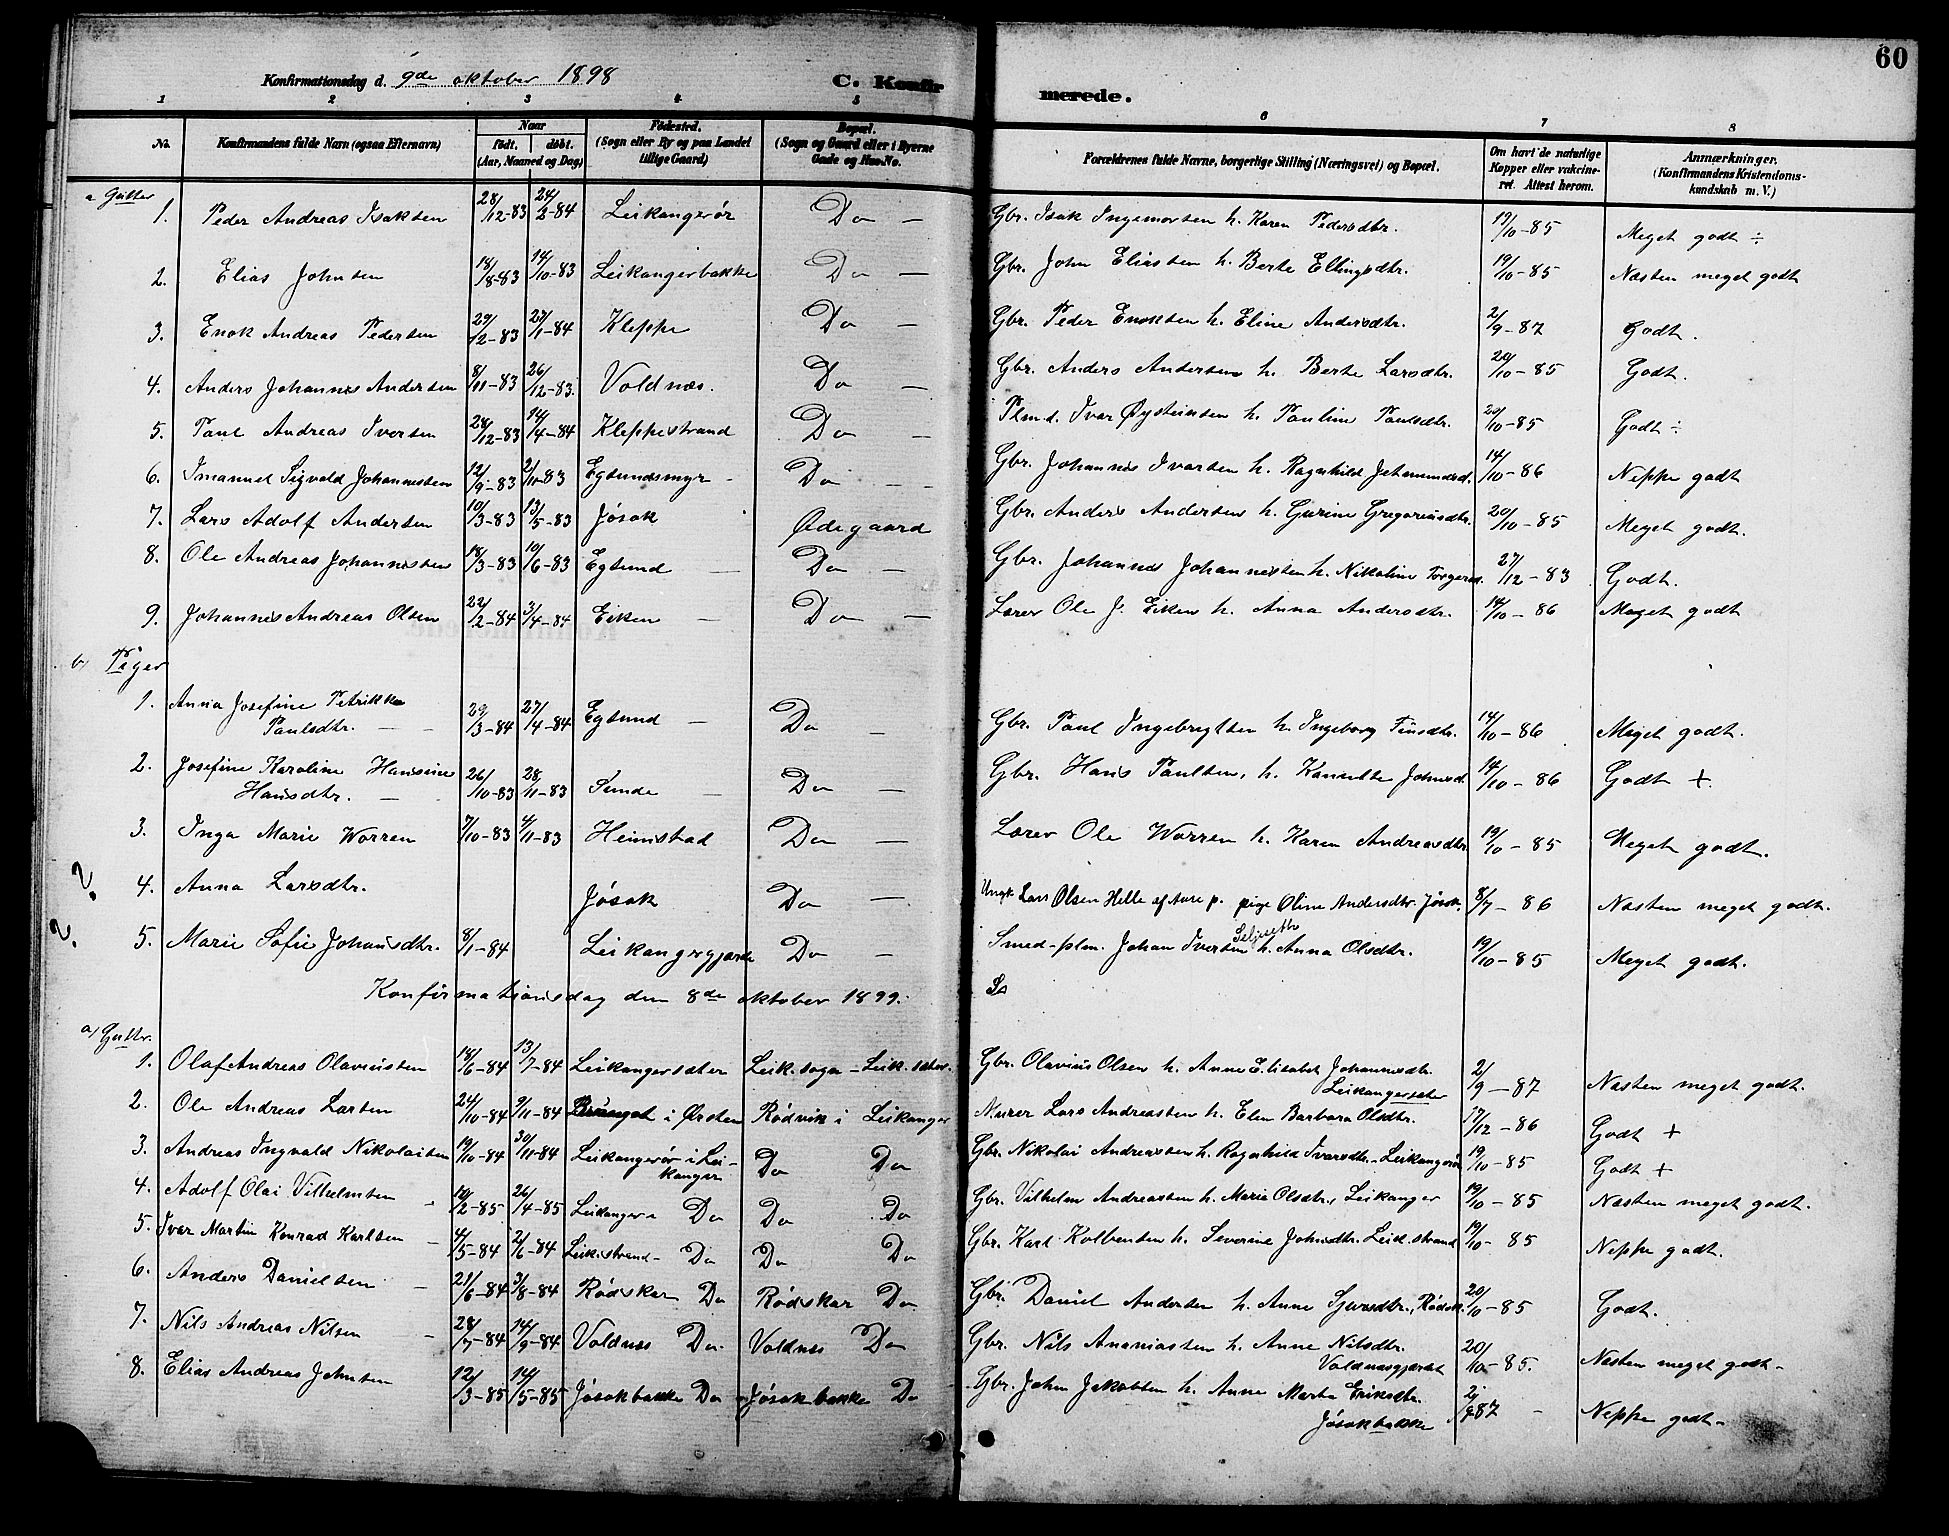 60
Konfirmationsdag d. 9de oktober 1898 C. Konfirmerede.
1 2 3 4 5 6 7 8
No. Konfirmandens fulde Navn (ogsaa Efternavn) Naar født. døbt. (Aar, Maaned og Dag) Fødested. (Sogn eller By og paa Landet tillige Gaard) Bopæl. (Sogn og Gaard eller i Byerne Gade og Hus-No. Forældrenes fulde Navne, borgerlige Stilling (Næringsvei) og Bopæl. Om havt de naturlige Kopper eller vakcineret. Attest herom. Anmærkninger. (Konfirmandens Kristendomskundskab m. V.)
a Gutter
1. Peder Andreas Isaksen 28/12-83 24/2-84 Leikangerør Do — Gbr. Isak Ingemorsen h. Karen Pedersdtr. 19/10-85 Meget godt ÷
2. Elias Johnsen 18/8-83 14/10-83 Leikangerbakke Do — Gbr. John Eliassen h. Berte Ellingsdtr. 19/10-85 Næsten meget godt
3. Enok Andreas Pedersen 29/12-83 27/1-84 Kleppe Do — Gbr. Peder Enoksen h. Eline Andersdtr. 2/9-87 Godt.
4. Anders Johannes Andersen 8/11-83 26/12-83. Voldnæs. Do — Gbr. Anders Andersen h. Berte Larsdtr. 20/10-85 Godt.
5. Paul Andreas Iversen 28/12-83 14/4-84 Kleppestrand Do — Plm.d. Ivar Øysteinsen h. Pauline Paulsdtr. 20/10-85 Godt ÷
6. Imanuel Sigvald Johannesen 12/9-83 2/10-83 Egsundsmyr - Do — Gbr. Johannes Ivarsen h. Ragnhild Jetmundsd. 14/10-86 Neppe godt
7. Lars Adolf Andersen 10/3-83 13/5-83 Jøsok Ødegaard Gbr. Anders Andersen h. Gurine Gregoriusdtr. 20/10-85 Meget godt.
8. Ole Andreas Johannesen 18/3-83 10/6-83 Egsund — Do — Gbr. Johannes Johannessen h. Nikoline Torgersd. 27/12-83 Godt.
9. Johannes Andreas Olsen 22/2-84 3/4-84 Eiken — Do — Lærer Ole J. Eiken h. Anna Andersdtr. 14/10-86 Meget godt
b) Piger
1. Anna Josefine Petrikke
Paulsdtr. — 29/3-84 27/4-84 Egsund — Do — Gbr. Paul Ingebrigtsen h. Ingeborg Finsdtr. 14/10-86 Meget godt.
2. Josefine Karoline Hansine
Hansdtr. — 26/10-83 28/11-83 Sunde — Do — Gbr. Hans Paulsen, h. Kanutte Johnsd. 14/10-86 Godt +
3. Inga Marie Worren 7/10-83 4/11-83 Heimstad Do — Lærer Ole Worren h. Karen Andreasdtr 19/10-85 Meget godt.
?. 4. Anna Larsdtr. Jøsok Do — Ungk. Lars Olsen Helle af Aure p. pige Oline Andersdtr. Jøsok. 8/7-86 Næsten meget godt.
?. 5. Marie Sofie Johansdtr. 8/1-84 Leikangergjærde Do — Smed-plm. Johan Iversen Seljeseth h. Anna Olsdtr. 19/10-85 Meget godt.
Konfirmationsdag den 8de oktober 1899.
a) Gutter.
1. Olaf Andreas Olaviussen 18/6-84 13/7-84 Leikangersæter Leik.sogn - Leik.sæter. Gbr. Olavius Olsen h. Anne Elisabet Johannesdtr.
Leikangersæter 2/9-87 Næsten meget godt.
2. Ole Andreas Larsen 24/10-84 9/11-84 i Ørsten Rødvik i Leikanger Murer Lars Andreassen h. Elen Barbara Olsdtr. 17/12-86 Godt +
3. Andreas Ingvald Nikolaisen 19/10-84 30/11-84 Leikangerør i Lei-
kanger Do Do Gbr. Nikolai Andreassen h. Ragnhild Ivarsdtr. - Leikangerør 19/10-85 Godt +
4. Adolf Olai Vilhelmsen 14/2-85 26/4-85 Leikanger i Do Do Do Gbr. Vilhelm Andreassen h. Marie Olsdtr., Leikanger 19/10-85 Næsten meget godt.
5. Ivar Martin Konrad Karlsen — 4/5-84 2/6-84 Leik.strand - Do Do Do Gbr. Karl Kolbensen h. Severine Johnsdtr. Leik.strand 19/10-85 Neppe godt.
6. Anders Danielsen — 21/6-84 3/8-84 Rødskar Do Rødskar Do Gbr. Daniel Andersen h. Anne Sjursdtr., Rødsk. 20/10-85 Godt.
7. Nils Andreas Nilsen — 28/7-84 14/9-84 Voldnes Do. Voldnes Do Gbr. Nils Ananiassen h. Anne Nilsdtr.
Voldnesgjærdet 20/10-85. Næsten meget godt -
8. Elias Andreas Johnsen 12/3-85 14/5-85 Jøsokbakke Do - Jøsokbakke Do Gbr. John Jakobsen h. Anne Marta Eriksdtr.
Jøsokbakke 2/9-87 - Neppe godt -